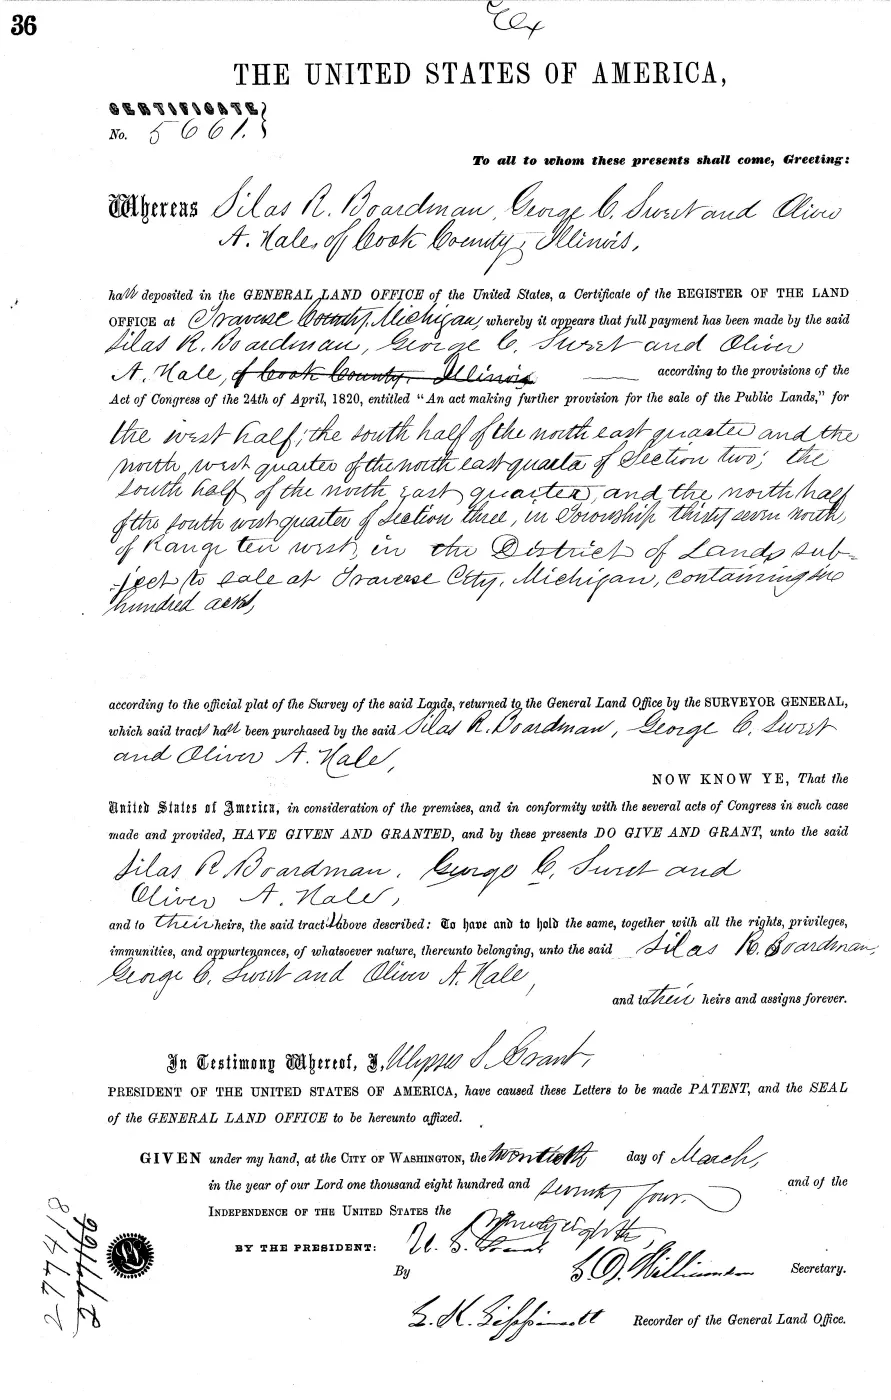 36
Ex
THE UNITED STATES OF AMERICA,
CERTIFICATE
No. 5661.
To all to whom these presents shall come, Greeting:
Whereas Silas R. Boardman, George C. Sweet and Oliver
A. Hale, of Cook County, Illinois,
have deposited in the GENERAL LAND OFFICE of the United States, a Certificate of the REGISTER OF THE LAND
OFFICE at Traverse County, Michigan, whereby it appears that full payment has been made by the said
Silas R. Boardman, George C. Sweet and Oliver
A. Hale, of Cook County, Illinois according to the provisions of the
Act of Congress of the 24th of April, 1820, entitled "An act making further provision for the sale of the Public Lands," for
the west half; the south half of the north east quarter and the
north west quarter of the north east quarter of Section two; the
south half of the north east quarter, and the north half
of the south west quarter of Section three, in Township thirty seven north,
of Range ten west, in the District of Lands sub-
-ject to sale at Traverse City, Michigan, containing six
hundred acres,
according to the official plat of the Survey of the said Lands, returned to the General Land Office by the SURVEYOR GENERAL,
which said tracts have been purchased by the said Silas R. Boardman, George C. Sweet
and Oliver A. Hale,
NOW KNOW YE, That the
United States of America, in consideration of the premises, and in conformity with the several acts of Congress in such case
made and provided, HAVE GIVEN AND GRANTED, and by these presents DO GIVE AND GRANT, unto the said
Silas R. Boardman, George C. Sweet and
Oliver A. Hale,
and to their heirs, the said tracts above described: To have and to hold the same, together with all the rights, privileges,
immunities, and appurtenances, of whatsoever nature, thereunto belonging, unto the said Silas R. Boardman,
George C. Sweet and Oliver A. Hale,
and to their heirs and assigns forever.
In Testimony Whereof, I, Ulysses S. Grant,
PRESIDENT OF THE UNITED STATES OF AMERICA, have caused these Letters to be made PATENT, and the SEAL
of the GENERAL LAND OFFICE to be hereunto affixed.
GIVEN under my hand, at the CITY OF WASHINGTON, the twentieth day of March,
in the year of our Lord one thousand eight hundred and seventy four and of the
INDEPENDENCE OF THE UNITED STATES the ninety eighth,
BY THE PRESIDENT: U. S. Grant
By S. D. Williamson Secretary.
L. K. Lippincott Recorder of the General Land Office.
277418
277166